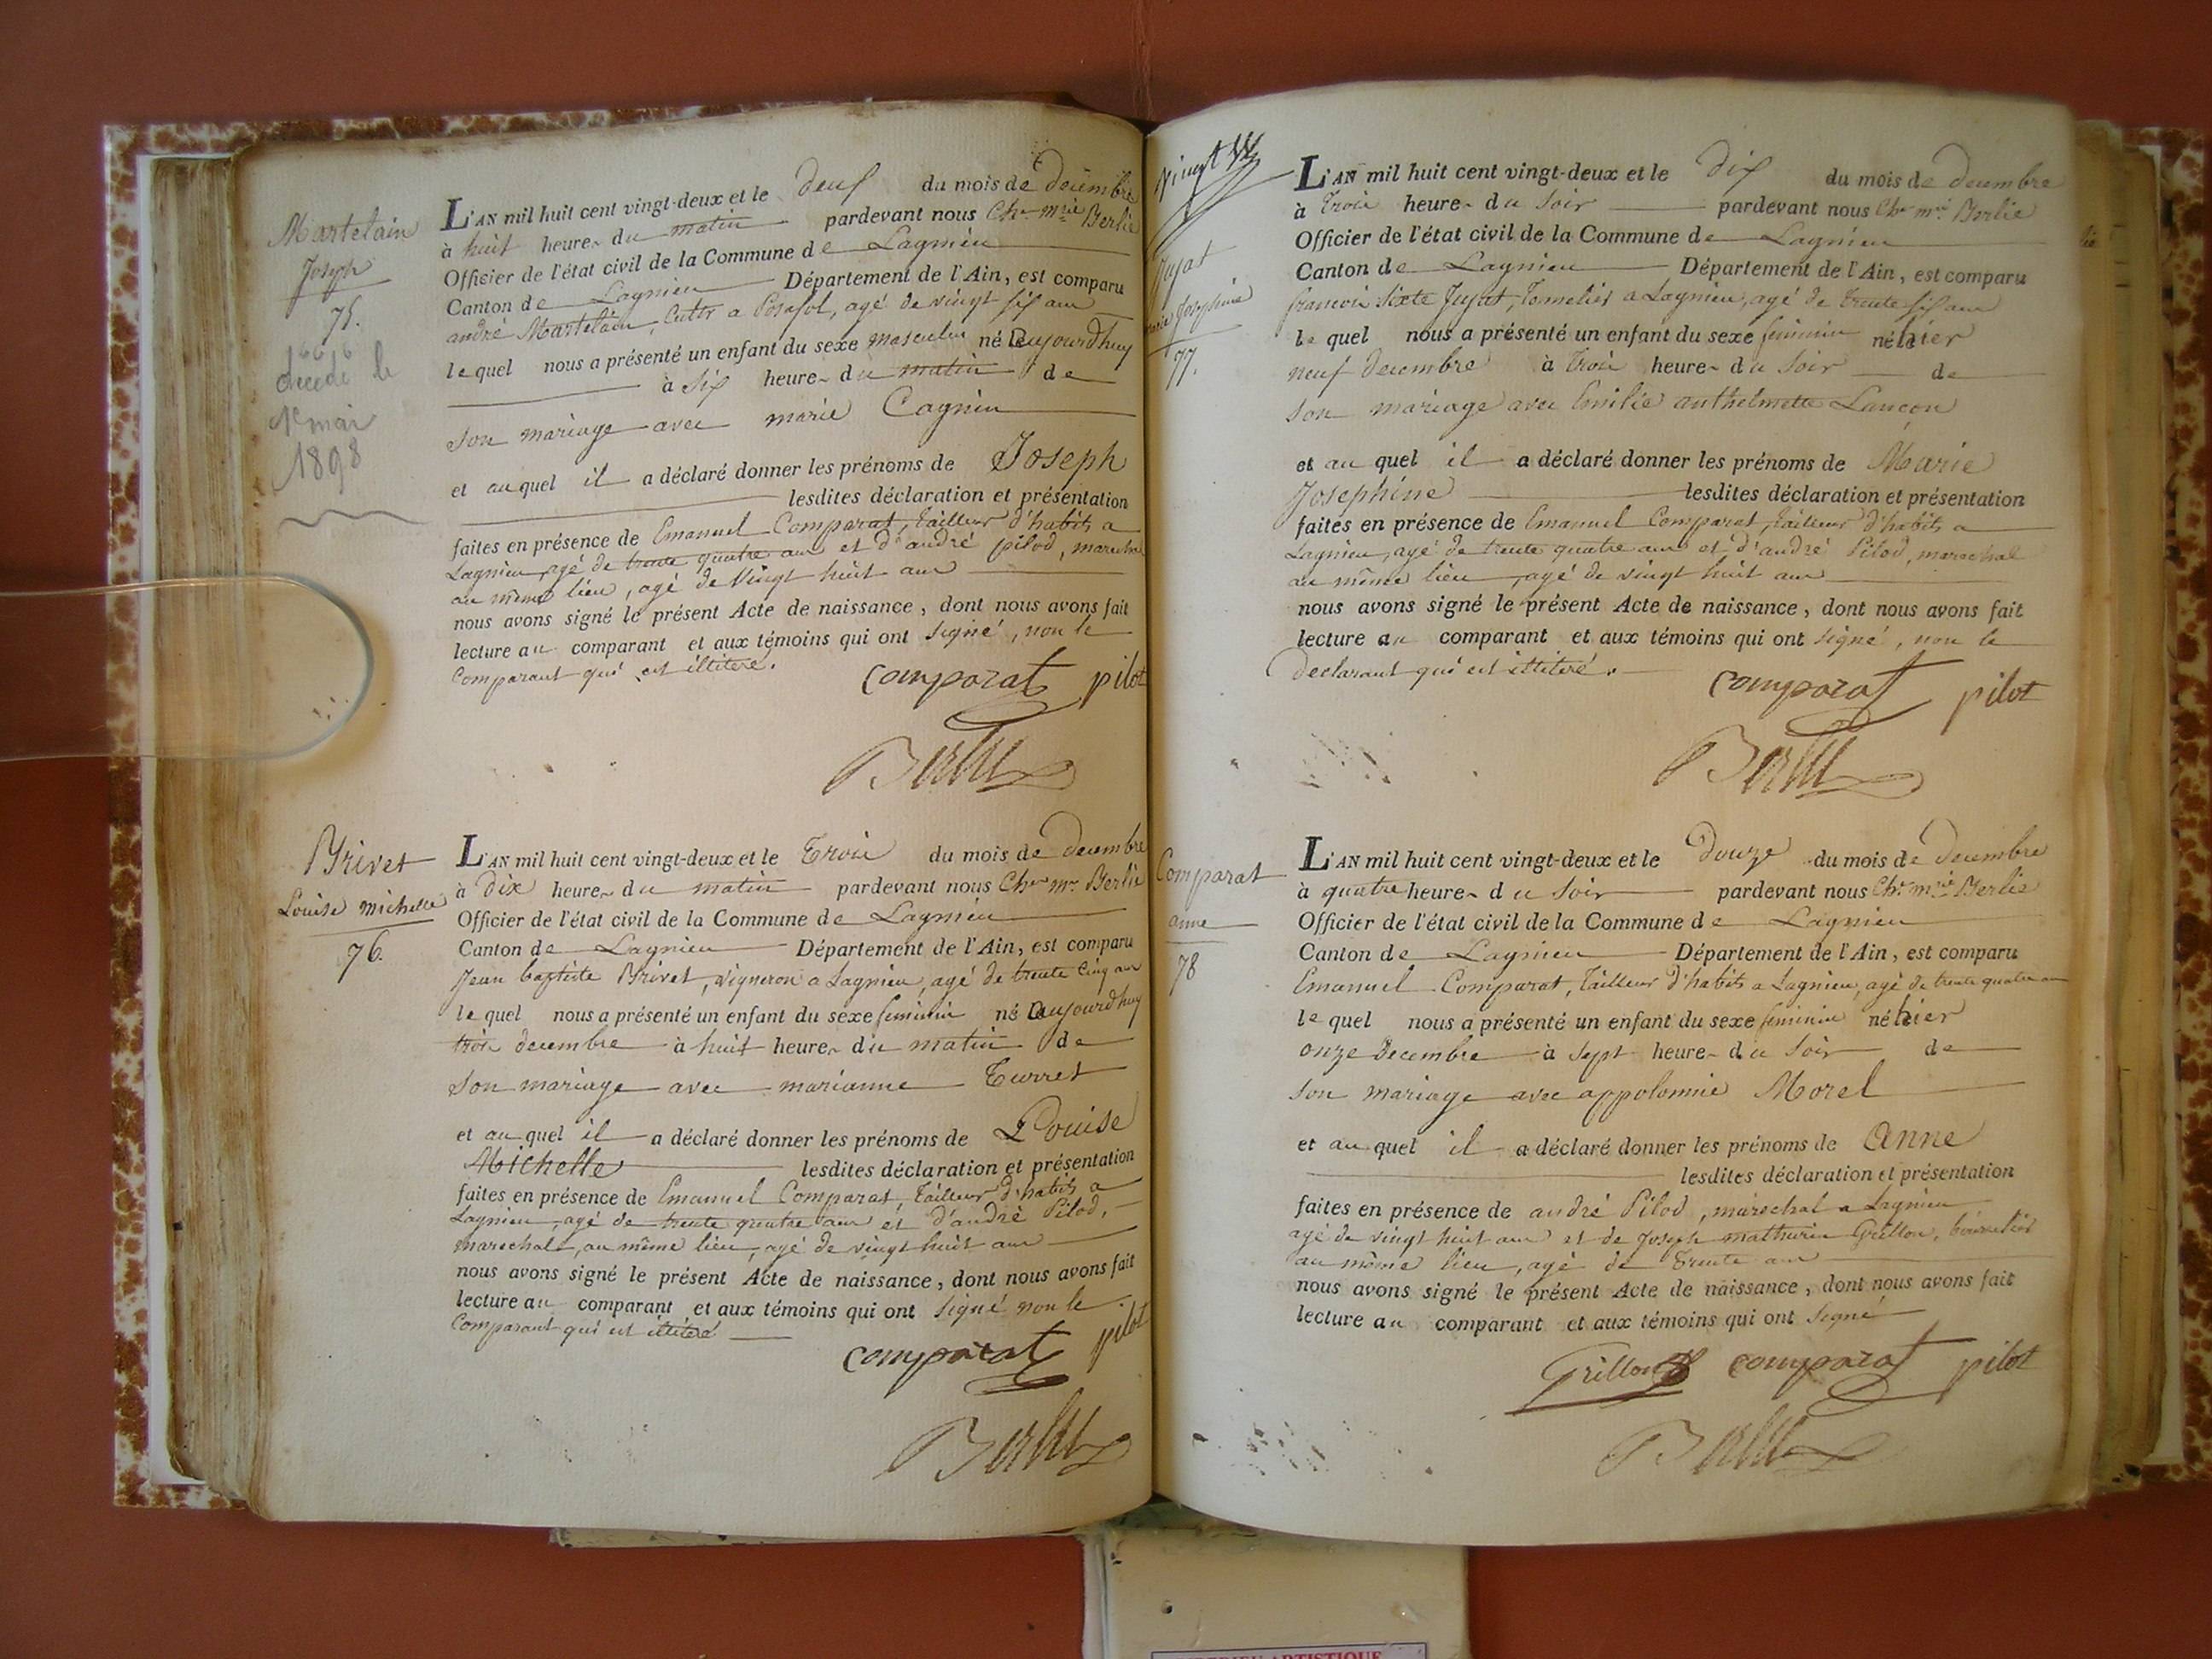 Martelain
Joseph
75.
décédé le
1er mai
1898
L'AN mil huit cent vingt-deux et le deux du mois de decembre
à huit heures du matin pardevant nous Chr. mrie Berlie
Officier de l'état civil de la Commune de Lagnieu
Canton de Lagnieu Département de l'Ain, est comparu
andré Martelain, Cultr a Posafol, agé de vingt six ans
le quel nous a présenté un enfant du sexe masculin né aujourdhuy
à six heures du matin de
son mariage avec marie Cagnin
et auquel il a déclaré donner les prénoms de Joseph
lesdites déclaration et présentation
faites en présence de Emanuel Comparat, tailleur d'habits a
Lagnieu, agé de trente quatre ans et d'andré pilod, marechal
au même lieu, agé de vingt huit ans
nous avons signé le présent Acte de naissance, dont nous avons fait
lecture au comparant et aux témoins qui ont signé, non le
Comparant qui est illiteré.
comparat pilot
Berlie
Brivet
Louise michelle
76.
L'AN mil huit cent vingt-deux et le Trois du mois de Decembre
à Dix heures du matin pardevant nous Chr mrie Berlie
Officier de l'état civil de la Commune de Lagnieu
Canton de Lagnieu Département de l'Ain, est comparu
Jean baptiste Brivet, vigneron a Lagnieu, agé de trente Cinq ans
le quel nous a présenté un enfant du sexe feminin né aujourdhuy
trois decembre à huit heures du matin de
son mariage avec marianne Turret
et au quel il a déclaré donner les prénoms de Louise
Michelle lesdites déclaration et présentation
faites en présence de Emanuel Comparat, tailleur d'habits a
Lagnieu, agé de trente quatre ans et d'andré Pilod,
marechal, au même lieu, agé de vingt huit ans
nous avons signé le présent Acte de naissance, dont nous avons fait
lecture au comparant et aux témoins qui ont signé non le
Comparant qui est illiteré
comparat pilot
Berlie
vingt
Jujat
marie Josephine
77.
L'AN mil huit cent vingt-deux et le dix du mois de decembre
à Trois heures du soir pardevant nous Chr mrie Berlie
Officier de l'état civil de la Commune de Lagnieu
Canton de Lagnieu Département de l'Ain, est comparu
francois Sixte Jujat, Tonnelier a Lagnieu, agé de trente six ans
le quel nous a présenté un enfant du sexe feminin né hier
neuf Decembre à trois heures du soir de
son mariage avec Emilie anthelmette Lançon
et au quel il a déclaré donner les prénoms de Marie
Josephine lesdites déclaration et présentation
faites en présence de Emanuel Comparat, tailleur d'habits a
Lagnieu, agé de trente quatre ans et d'andré Pilod, marechal
au même lieu, agé de vingt huit ans
nous avons signé le présent Acte de naissance, dont nous avons fait
lecture au comparant et aux témoins qui ont signé, non le
Declarant qui est illiteré.
comparat pilot
Berlie
Comparat
anne
78
L'AN mil huit cent vingt-deux et le Douze du mois de Decembre
à quatre heures du soir pardevant nous Chr mrie Berlie
Officier de l'état civil de la Commune de Lagnieu
Canton de Lagnieu Département de l'Ain, est comparu
Emanuel Comparat, Tailleur d'habits a Lagnieu, agé de trente quatre ans
le quel nous a présenté un enfant du sexe feminin né hier
onze Decembre à sept heures du soir de
son mariage avec appolonnie Morel
et au quel il a déclaré donner les prénoms de Anne
lesdites déclaration et présentation
faites en présence de andré Pilod, marechal a Lagnieu
agé de vingt huit ans et de Joseph mathurin Grillon, bourrelier
au même lieu, agé de Trente ans
nous avons signé le présent Acte de naissance, dont nous avons fait
lecture au comparant et aux témoins qui ont signé
Grillon comparat pilot
Berlie